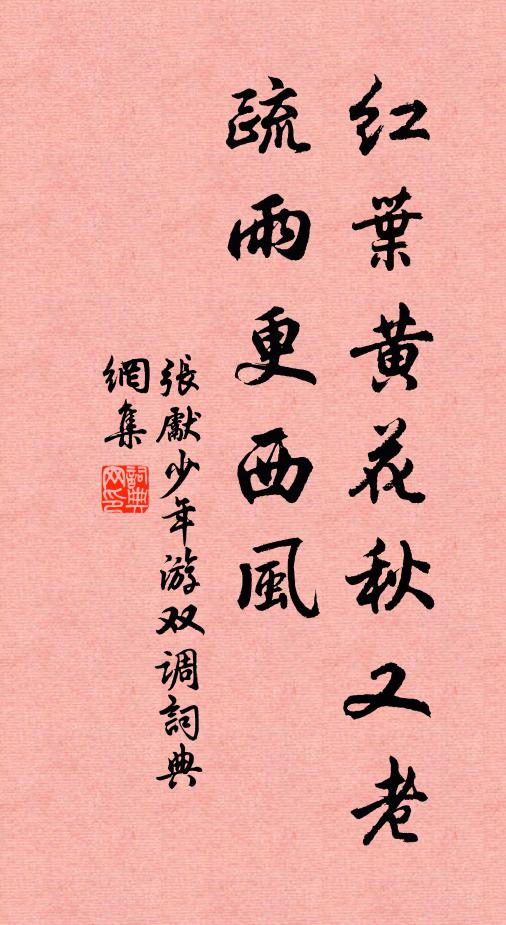 红葉黄花秋又老
疏雨更西風
張獻少年游双调詞典
網集
詞典網印